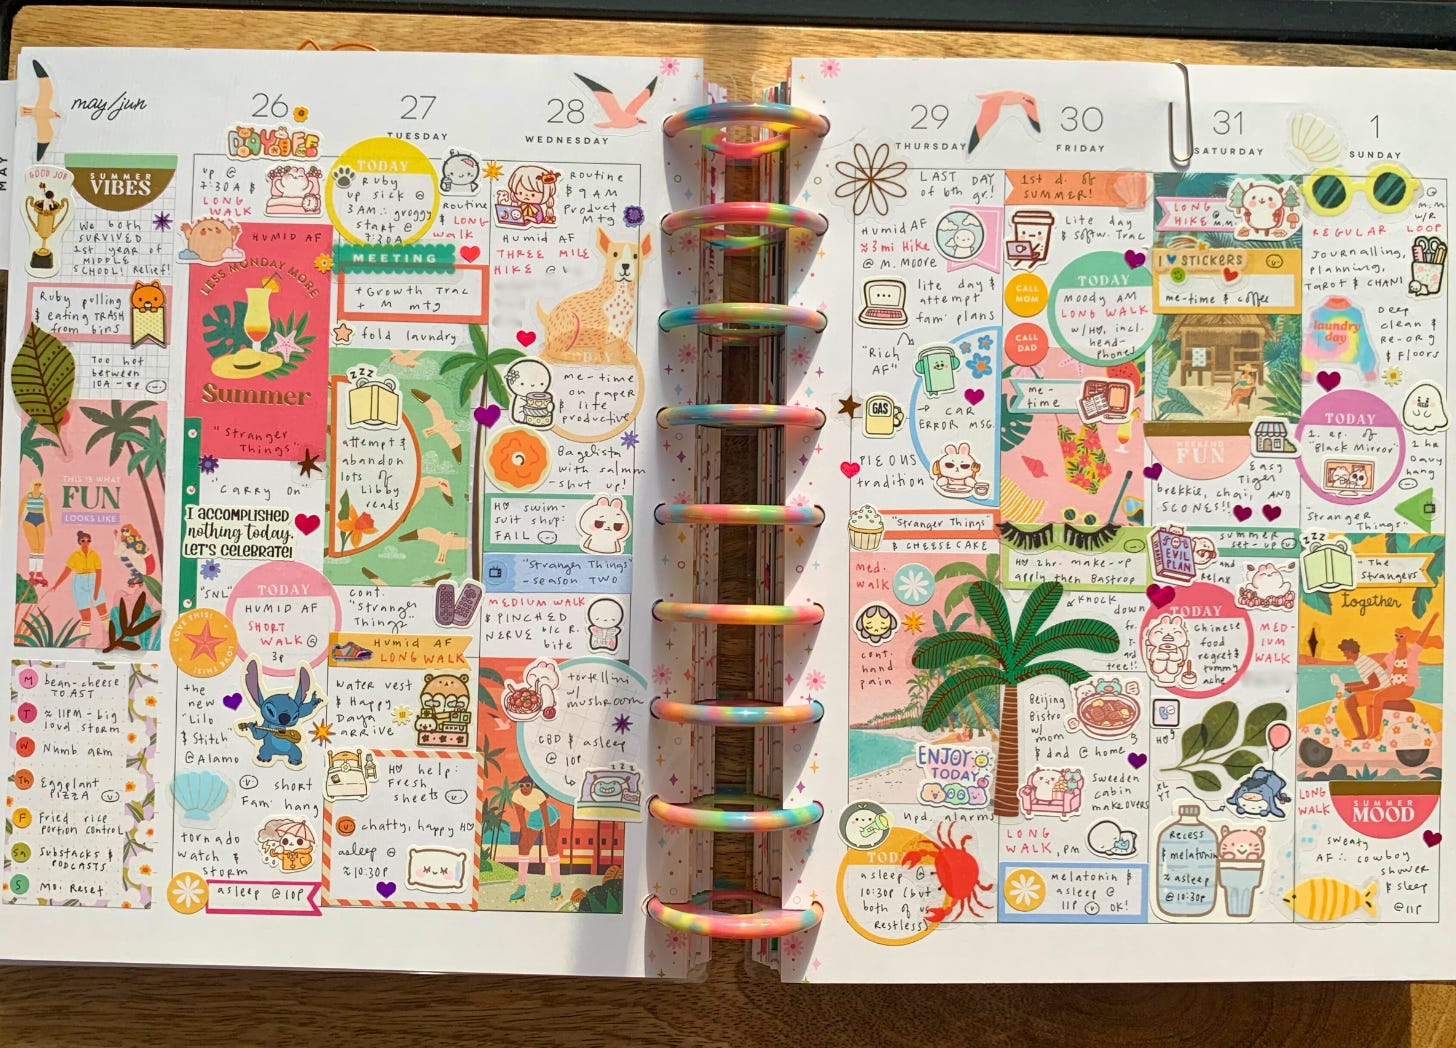 MAY
may/jun
GOOD JOB
SUMMER
VIBES
We both
SURVIVED
1st year of
MIDDLE
SCHOOL! Relief!
Ruby pulling
& eating TRASH
from bins
Too hot
between
10A - 8p
THIS IS WHAT
FUN
LOOKS LIKE
M bean-cheese
TOAST
T ≈ 11PM - big
loud storm
W Numb arm
Th Eggplant
PIZZA
F Fried rice
portion control
Sa Substacks &
PODCASTS
S Mo. Reset
26
DAY OFF
up @
7:30A &
LONG
WALK
HUMID AF
LESS MONDAY MORE
Summer
"Stranger
Things"
"Carry On"
I ACCOMPLISHED
nothing today.
LET'S CELEBRATE!
"SNL"
TODAY
HUMID AF
SHORT
WALK @
3p
LOVE THIS!
LOVE THIS!
the
new
"Lilo
& Stitch"
@Alamo
short
Fam hang
tornado
watch &
storm
asleep @ 10P
27
TUESDAY
TODAY
Ruby
up sick @
3 AM ∴ groggy
start @
7:30A
Routine
& LONG
walk
MEETING
+ Growth Trac
+ M mtg
fold laundry
ZZZ
attempt &
abandon
lots of
Libby
reads
cont.
"Stranger
Things"
Humid AF
LONG WALK
water vest
& Happy
Daya
arrive
H help:
Fresh
sheets
chatty, happy H
asleep @
≈ 10:30P
28
WEDNESDAY
Routine
& 9AM
Product
Mtg
Humid AF
THREE MILE
HIKE @
TODAY
me-time
on paper
& lite
productive
Bagelista
with salmon
- shut up!
H swim-
suit shop:
FAIL
"Stranger Things"
- season TWO
MEDIUM WALK
& PINCHED
NERVE b/c R.
bite
tortellini
w/
mushroom
CBD & asleep
@ 10P
29
THURSDAY
LAST DAY
of 6th gr.!
Humid AF
≈3 mi Hike
@ M. Moore
lite day &
attempt
fam plans
"Rich
AF"
GAS
→ CAR
ERROR MSG.
PLEOUS
tradition
"Stranger Things"
& CHEESECAKE
med.
walk
cont.
hand
pain
ENJOY
TODAY
TODAY
asleep @
10:30P (but
both of us
restless)
30
FRIDAY
1st d. of
SUMMER!
Lite day
& Softw. Trac
CALL
MOM
CALL
DAD
TODAY
moody AM
LONG WALK
w/H, incl.
head-
phones
me-
time
H 2 hr. make-up
apply then Bastrop
knock
down
tree!!
Beijing
Bistro
w/
mom
& dad @ home
Sweden
cabin
makeOVERS
npd. alarms
LONG
WALK, PM
melatonin &
asleep @
11P OK!
31
SATURDAY
LONG
HIKE @ M.M.
I STICKERS
me-time & coffee
WEEKEND
FUN
Easy
Tiger
brekkie, chai, AND
SCONES!!
summer
set-up
EVIL
PLAN
and
Relax
TODAY
Chinese
food
regret &
tummy
ache
MED-
IUM
WALK
H
XL
Recess
& melatonin
≈ asleep
@ 10:30P
1
SUNDAY
@
M.M.
w/R
REGULAR LOOP
JOURNALLING,
planning,
TAROT & CHANI
laundry
day
Deep
clean &
re-org
& Floors
TODAY
1 ep. of
"Black Mirror"
2 hr
Davy
hang
"Stranger
Things"
ZZZ
- The
Strangers
together
LONG
WALK
SUMMER
MOOD
sweaty
AF ∴ cowboy
shower
& sleep
@ 11P